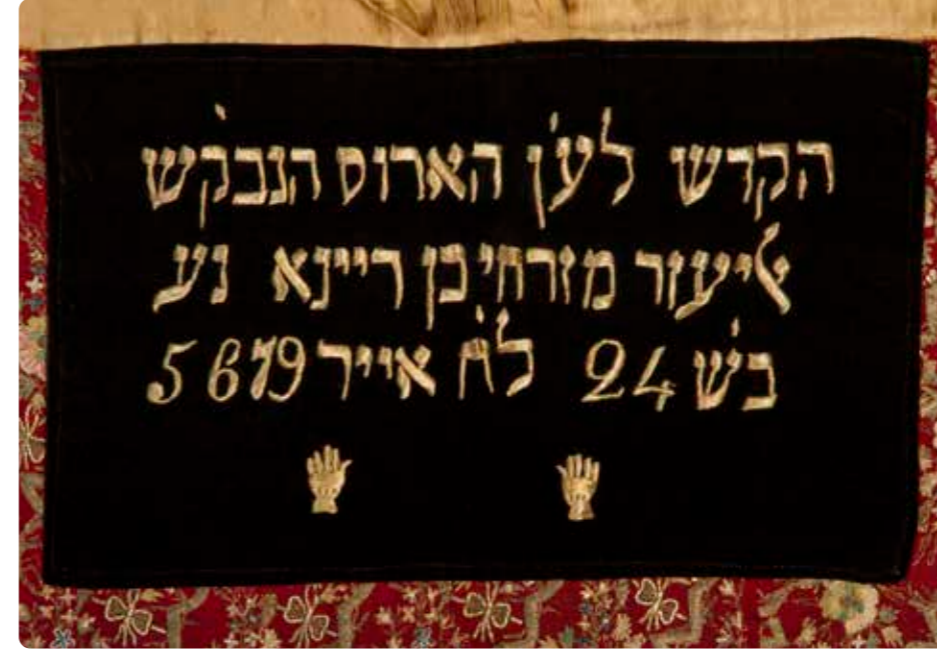 הקדש לע'ן הארוס הנבק'ש
ﭏיעזר מזרחי בן ריינא נע
ב'ש 24 ל'ח אייר 5679